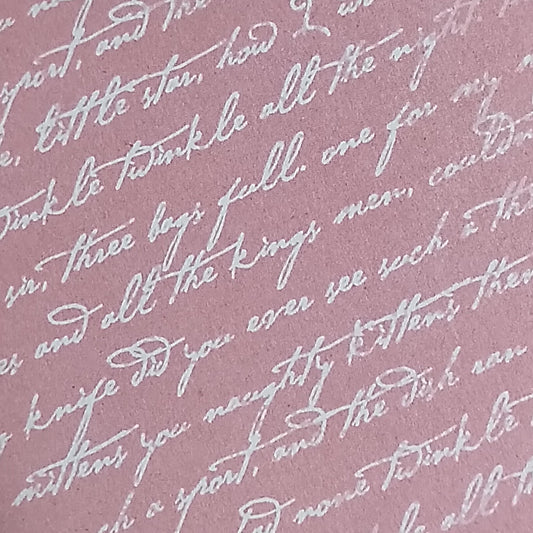 sport, and the how I
little star, how I
twinkle twinkle all the night.
sir, three bags full. one for my
and all the kings men, couldn
knife did you ever see such a th
mittens you naughty kittens then
a sport, and the dish ran
none twinkle
all th